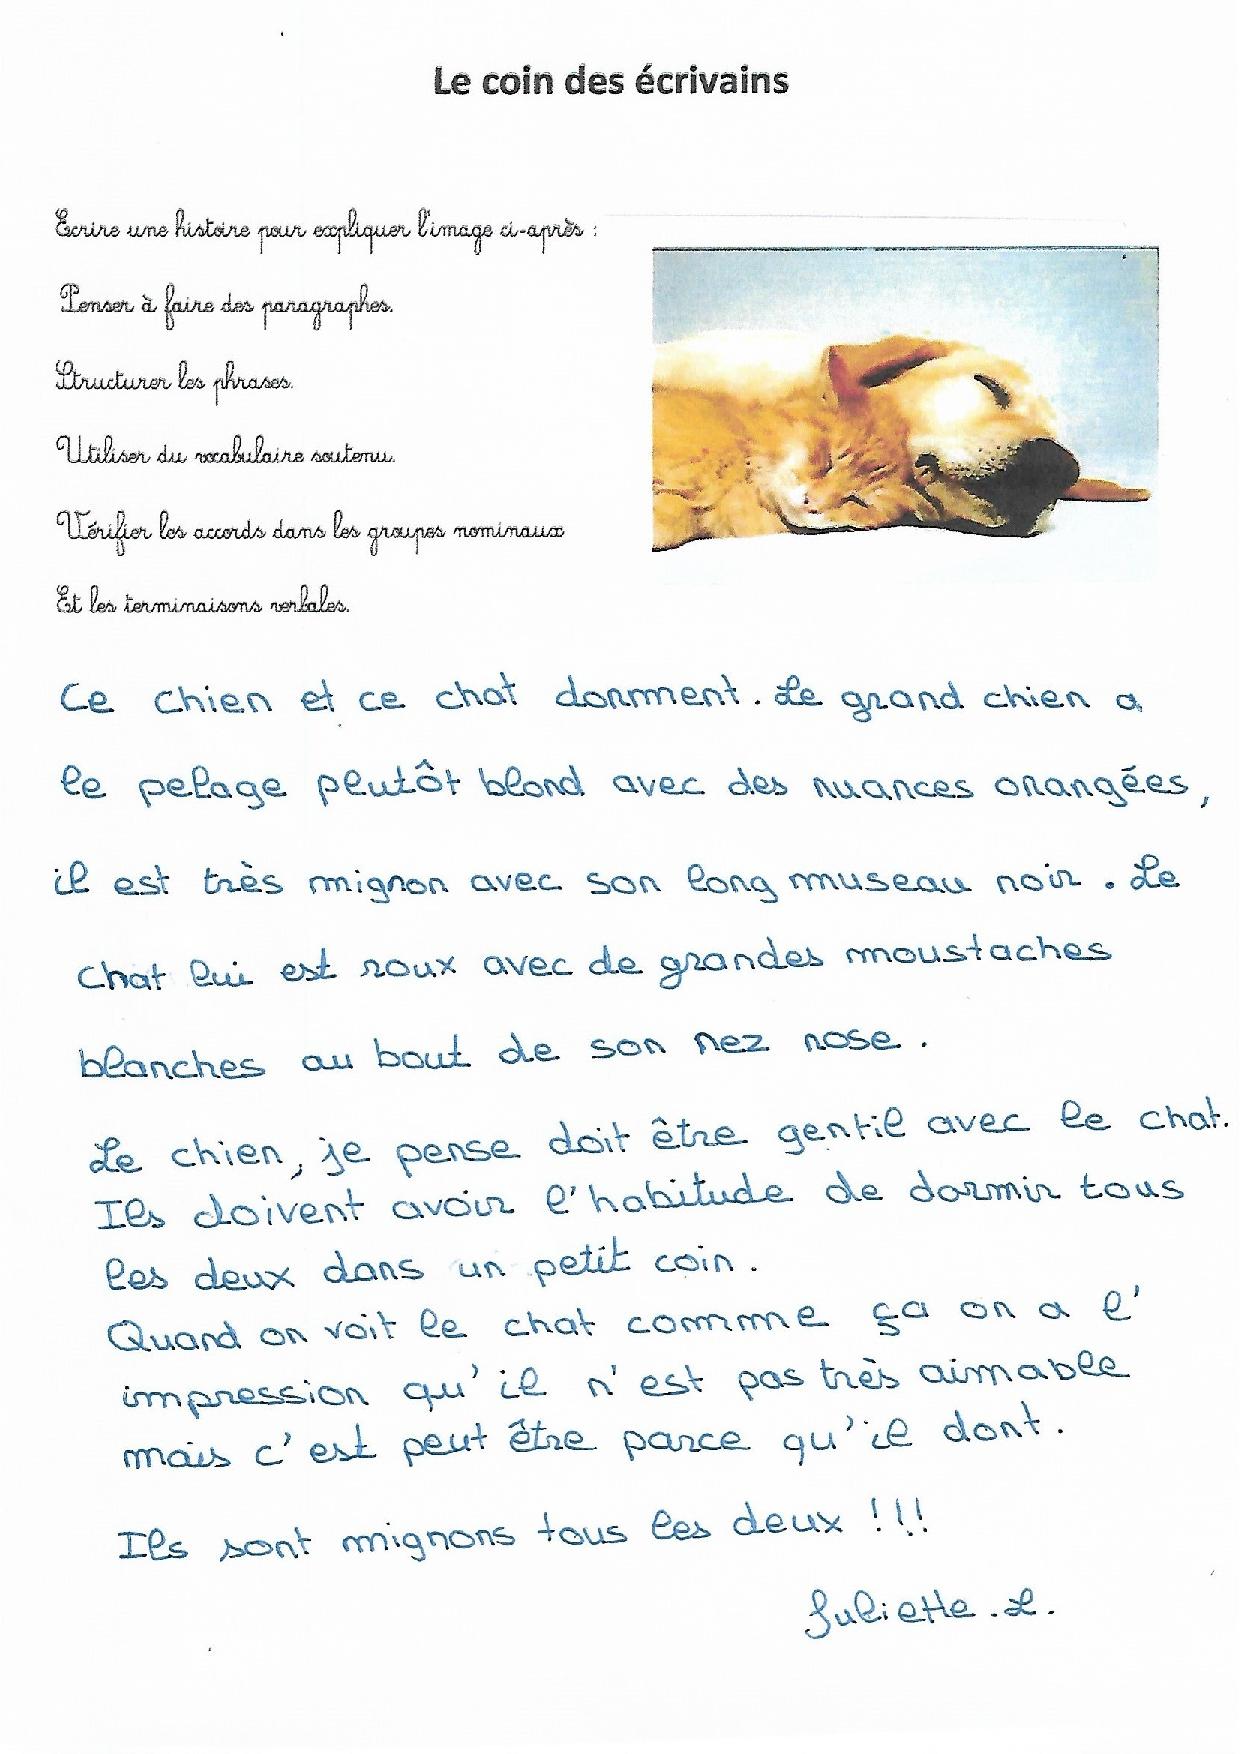 Le coin des écrivains
Ecrire une histoire pour expliquer l'image ci-après :
Penser à faire des paragraphes.
Structurer les phrases.
Utiliser du vocabulaire soutenu.
Vérifier les accords dans les groupes nominaux
Et les terminaisons verbales.
Ce chien et ce chat dorment. Le grand chien a
le pelage plutôt blond avec des nuances orangées,
il est très mignon avec son long museau noir. Le
chat lui est roux avec de grandes moustaches
blanches au bout de son nez rose.
Le chien, je pense doit être gentil avec le chat.
Ils doivent avoir l'habitude de dormir tous
les deux dans un petit coin.
Quand on voit le chat comme ça on a l'
impression qu'il n'est pas très aimable
mais c'est peut être parce qu'il dort.
Ils sont mignons tous les deux !!!
Juliette .L.